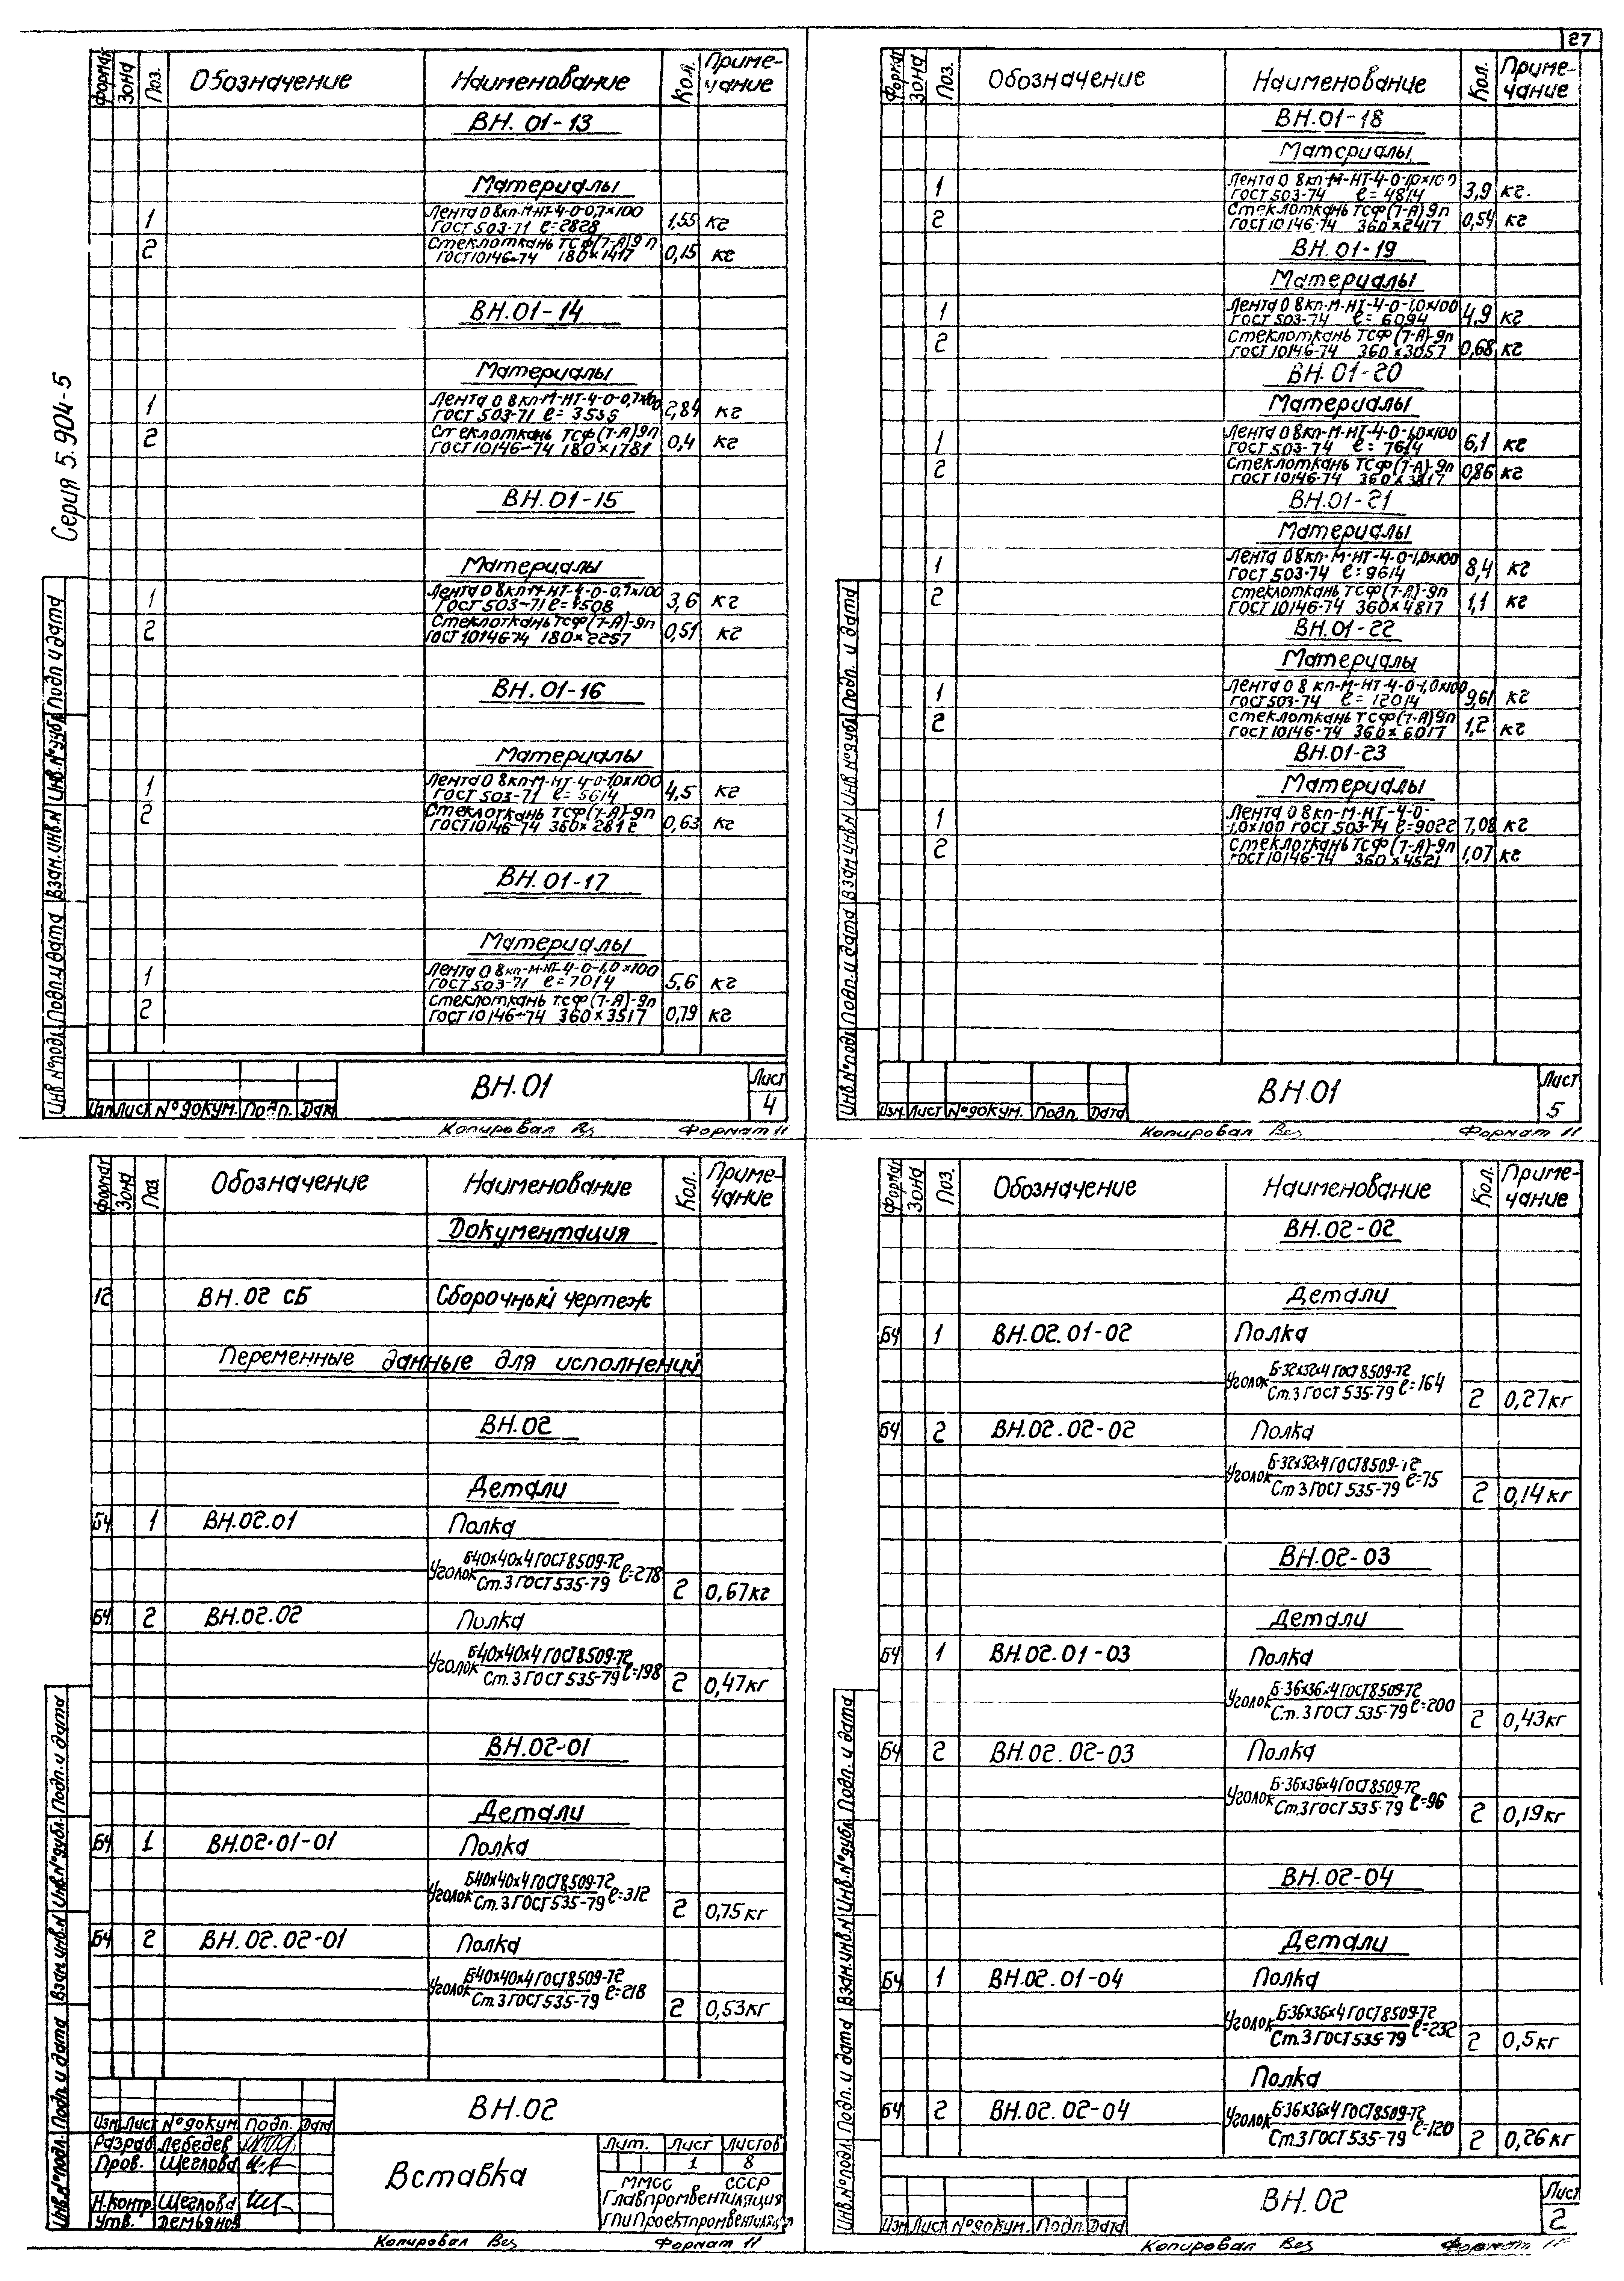 27
Серия 5.904-5
Формат Зона Поз. Обозначение Наименование Кол. Приме-
чание
ВН. 01-13
Материалы
1 Лента 08кп-М-НТ-4-0-0,7×100
ГОСТ 503-71 ℓ=2828 1,55 кг
2 Стеклоткань ТСФ(7-А)9п
ГОСТ10146-74 180×1417 0,15 кг
ВН.01-14
Материалы
1 Лента 08кп-М-НТ-4-0-0,7×100
ГОСТ 503-71 ℓ= 2,84 кг
2 Стеклоткань ТСФ(7-А)9п
ГОСТ10146-74 180×1781 0,4 кг
ВН.01-15
Материалы
1 Лента 08кп-М-НТ-4-0-0,7×100
ГОСТ 503-71 ℓ= 3,6 кг
2 Стеклоткань ТСФ(7-А)-9п
ГОСТ10146-74 180×2257 0,51 кг
ВН.01-16
Материалы
1 Лента 08кп-М-НТ-4-0-1,0×100
ГОСТ 503-71 ℓ=5614 4,5 кг
2 Стеклоткань ТСФ(7-А)-9п
ГОСТ10146-74 360×2812 0,63 кг
ВН.01-17
Материалы
1 Лента 08кп-М-НТ-4-0-1,0×100
ГОСТ 503-71 ℓ=7014 5,6 кг
2 Стеклоткань ТСФ(7-А)-9п
ГОСТ10146-74 360×3517 0,79 кг
Инв.№подл. Подп.и дата Взам.инв.№ Инв.№дубл. Подп и дата
Изм Лист №докум. Подп. Дата
ВН.01
Лист
4
Копировал Формат 11
Формат Зона Поз. Обозначение Наименование Кол. Приме-
чание
ВН.01-18
Материалы
1 Лента 08кп-М-НТ-4-0-1,0×100
ГОСТ 503-74 ℓ=4814 3,9 кг.
2 Стеклоткань ТСФ(7-А)9п
ГОСТ10146-74 360×2417 0,54 кг
ВН. 01-19
Материалы
1 Лента 08кп-М-НТ-4-0-1,0×100
ГОСТ 503-74 ℓ=6094 4,9 кг
2 Стеклоткань ТСФ(7-А)-9п
ГОСТ10146-74 360×3057 0,68 кг
ВН. 01-20
Материалы
1 Лента 08кп-М-НТ-4-0-1,0×100
ГОСТ 503-74 ℓ=7614 6,1 кг
2 Стеклоткань ТСФ(7-А)-9п
ГОСТ10146-74 360×3817 0,86 кг
ВН.01-21
Материалы
1 Лента 08кп-М-НТ-4-0-1,0×100
ГОСТ 503-74 ℓ=9614 8,4 кг
2 Стеклоткань ТСФ(7-А)-9п
ГОСТ10146-74 360×4817 1,1 кг
ВН.01-22
Материалы
1 Лента 08кп-М-НТ-4-0-1,0×100
ГОСТ 503-74 ℓ=12014 9,61 кг
2 Стеклоткань ТСФ(7-А)9п
ГОСТ10146-74 360×6017 1,2 кг
ВН.01-23
Материалы
1 Лента 08кп-М-НТ-4-0-
1,0×100 ГОСТ 503-74 ℓ=9022 7,08 кг
2 Стеклоткань ТСФ(7-А)-9п
ГОСТ10146-74 360×4521 1,07 кг
Инв.№подл. Подп.и дата Взам инв.№ Инв №дубл. Подп. и дата
Изм. Лист №докум. Подп. Дата
ВН.01
Лист
5
Копировал Формат 11
Формат Зона Поз Обозначение Наименование Кол. Приме-
чание
Документация
12 ВН.02 СБ Сборочный чертеж
Переменные данные для исполнений
ВН.02
Детали
БЧ 1 ВН.02.01 Полка
Уголок Б40×40×4 ГОСТ8509-72
Ст.3 ГОСТ535-79 ℓ=278 2 0,67кг
БЧ 2 ВН.02.02 Полка
Уголок Б40×40×4 ГОСТ8509-72
Ст.3 ГОСТ535-79 ℓ=198 2 0,47кг
ВН.02-01
Детали
БЧ 1 ВН.02.01-01 Полка
Уголок Б40×40×4 ГОСТ8509-72
Ст.3 ГОСТ535-79 ℓ=312 2 0,75кг
БЧ 2 ВН.02.02-01 Полка
Уголок Б40×40×4 ГОСТ8509-72
Ст.3 ГОСТ535-79 ℓ=218 2 0,53кг
Инв.№подл. Подп.и дата Взам.инв.№ Инв.№дубл. Подп.и дата
Изм. Лист №докум. Подп. Дата
Разраб Лебедев
Пров. Щеглова
Н.контр. Щеглова
Утв. Демьянов
ВН.02
Вставка
Лит. Лист Листов
1 8
ММСС СССР
Главпромвентиляция
ГПИ Проектпромвентиляция
Копировал Формат 11
Формат Зона Поз. Обозначение Наименование Кол. Приме-
чание
ВН.02-02
Детали
БЧ 1 ВН.02.01-02 Полка
Уголок Б-32×32×4 ГОСТ8509-72
Ст.3 ГОСТ535-79 ℓ=164 2 0,27кг
БЧ 2 ВН.02.02-02 Полка
Уголок Б-32×32×4 ГОСТ8509-72
Ст 3 ГОСТ535-79 ℓ=75 2 0,14кг
ВН.02-03
Детали
БЧ 1 ВН.02.01-03 Полка
Уголок Б-36×36×4 ГОСТ8509-72
Ст.3 ГОСТ535-79 ℓ=200 2 0,43кг
БЧ 2 ВН.02.02-03 Полка
Уголок Б-36×36×4 ГОСТ8509-72
Ст.3 ГОСТ535-79 ℓ=96 2 0,19кг
ВН.02-04
Детали
БЧ 1 ВН.02.01-04 Полка
Уголок Б-36×36×4 ГОСТ8509-72
Ст.3 ГОСТ535-79 ℓ=232 2 0,5кг
Полка
БЧ 2 ВН.02.02-04 Уголок Б-36×36×4 ГОСТ8509-72
Ст.3 ГОСТ535-79 ℓ=120 2 0,26кг
Инв.№подл. Подп.и дата Взам.инв.№ Инв.№дубл. Подп.и дата
Изм Лист №докум. Подп. Дата
ВН.02
Лист
2
Копировал Формат 11